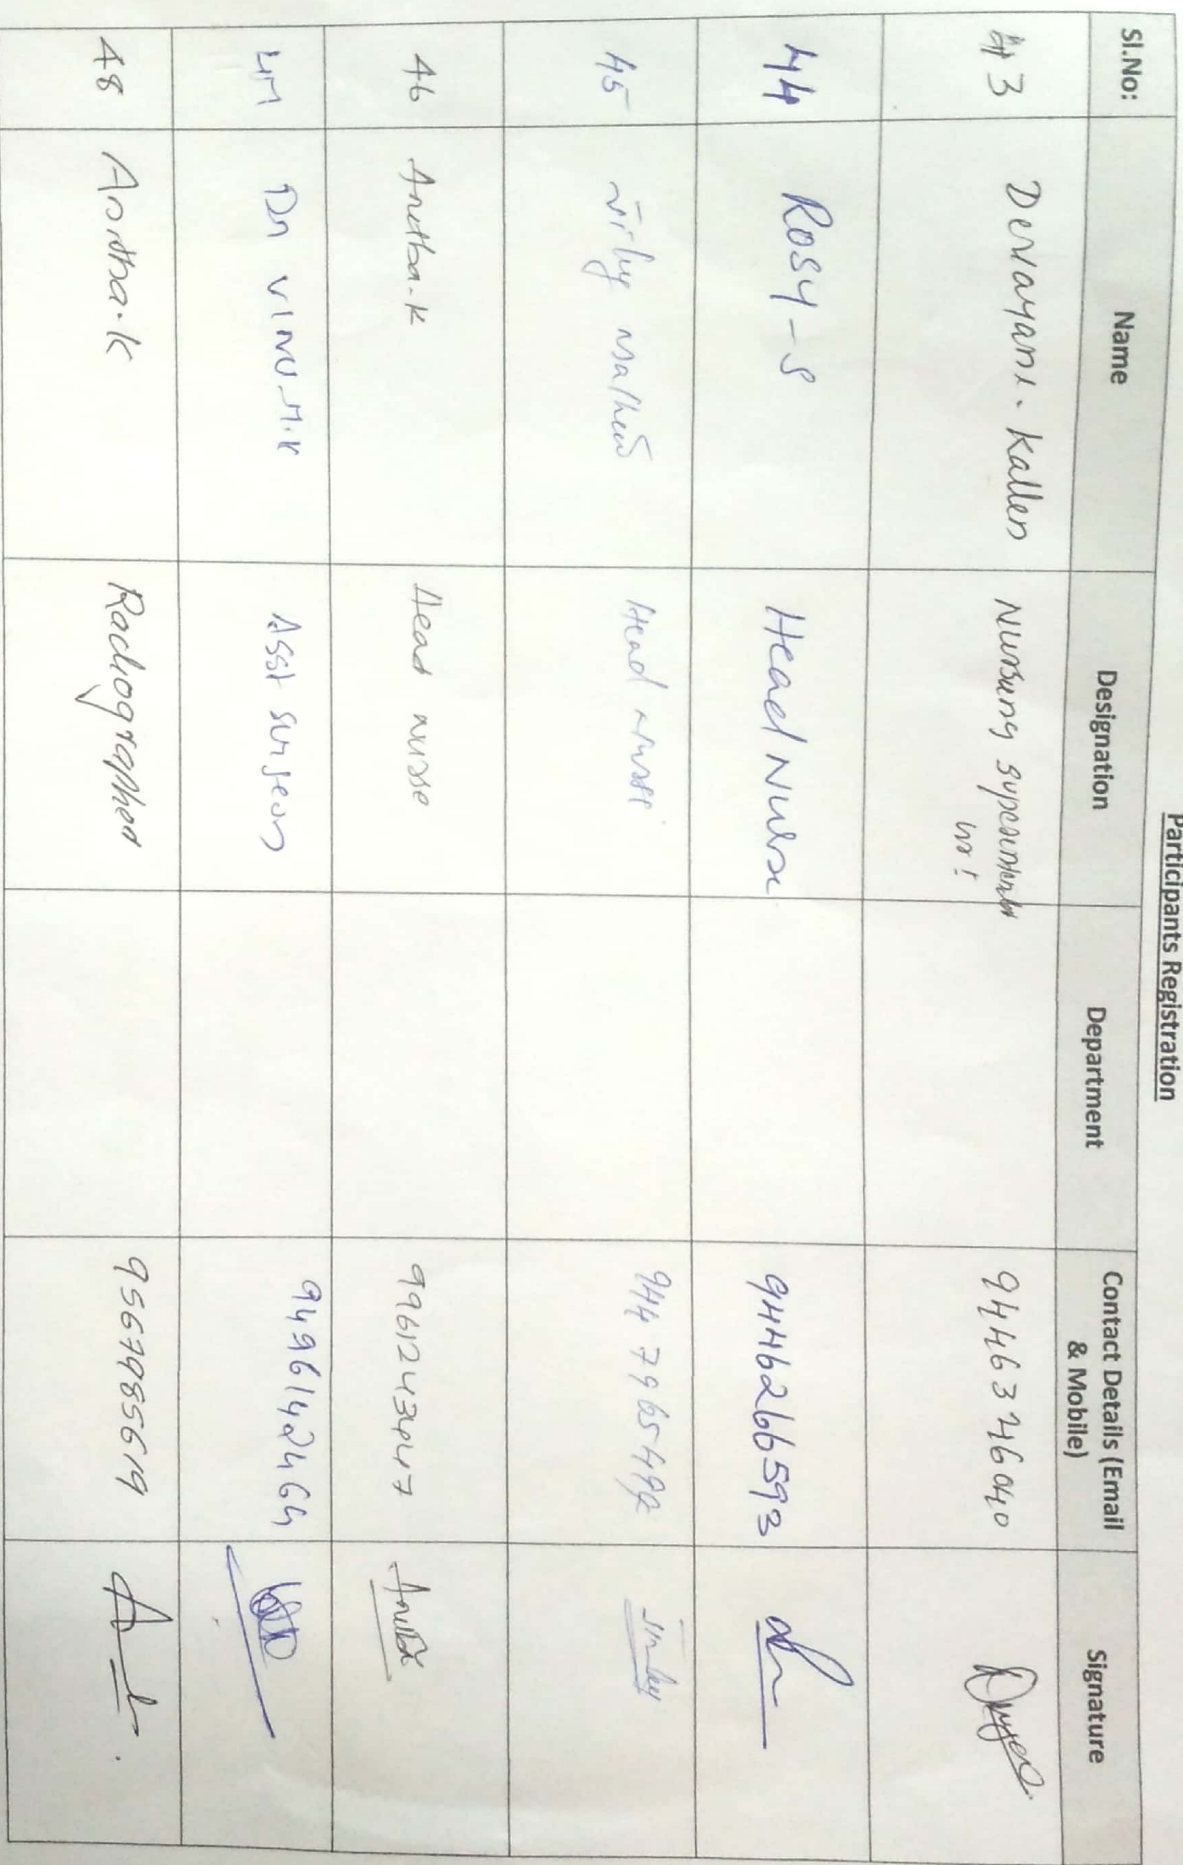 Participants Registration
Sl.No: Name Designation Department Contact Details (Email & Mobile) Signature
43 Devayani. Kallen Nursing
44 Rosy-S Head Nurse 9446266593
45 Mathew Head nurse 944 7965492
46 Anitha.K Head nurse 9961243447 Anitha
47 Dr VINU.M.K Asst surgeon 9496142464
48 Anitha.K Radiographer 9567985619